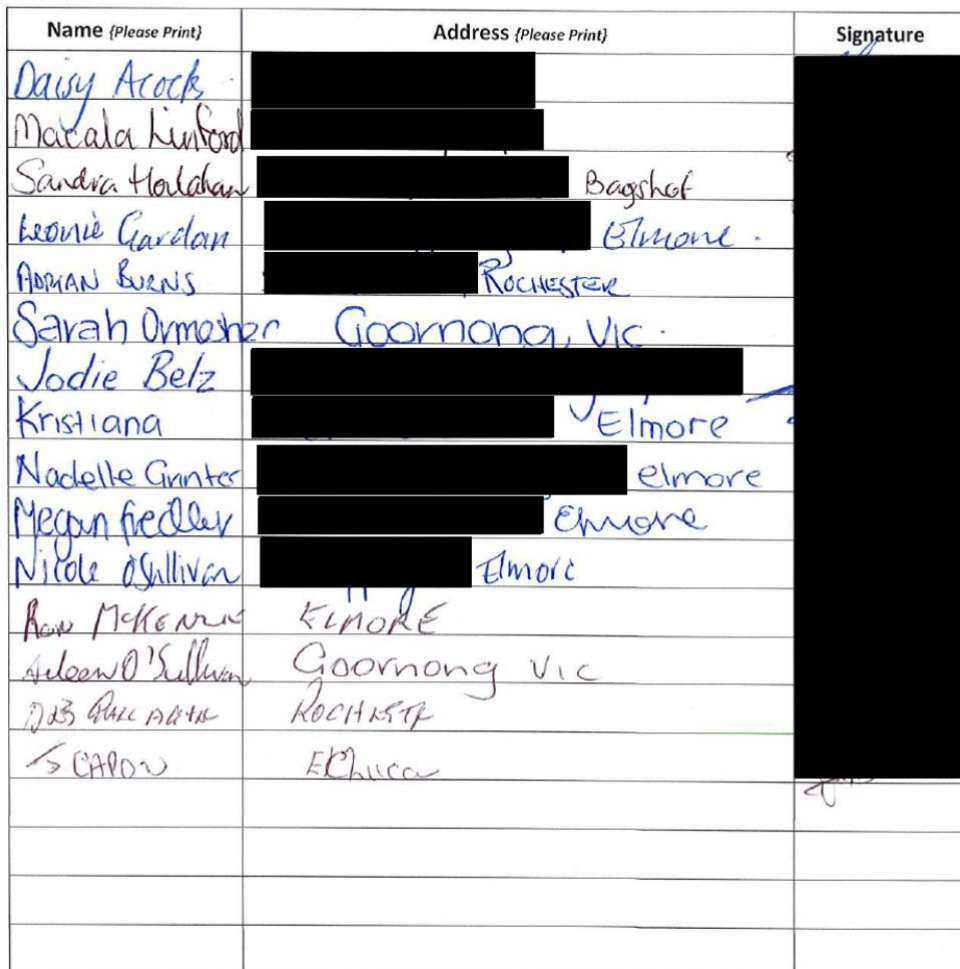 Name {Please Print} Address {Please Print} Signature
Daisy Acocks
Macala Linford
Sandra Houlahan Bagshot
Leonie Gardan Elmore.
ADRIAN BURNS ROCHESTER
Sarah Ormosher Goornong, Vic.
Jodie Belz
Kristiana Elmore
Nadelle Grinter elmore
Megan Fiedler Elmore
Nicole O'Sullivan Elmore
Ron McKENZIE ELMORE
Aileen O'Sullivan Goornong Vic
DEB GALLAGHER ROCHESTER
CAPON EChuca